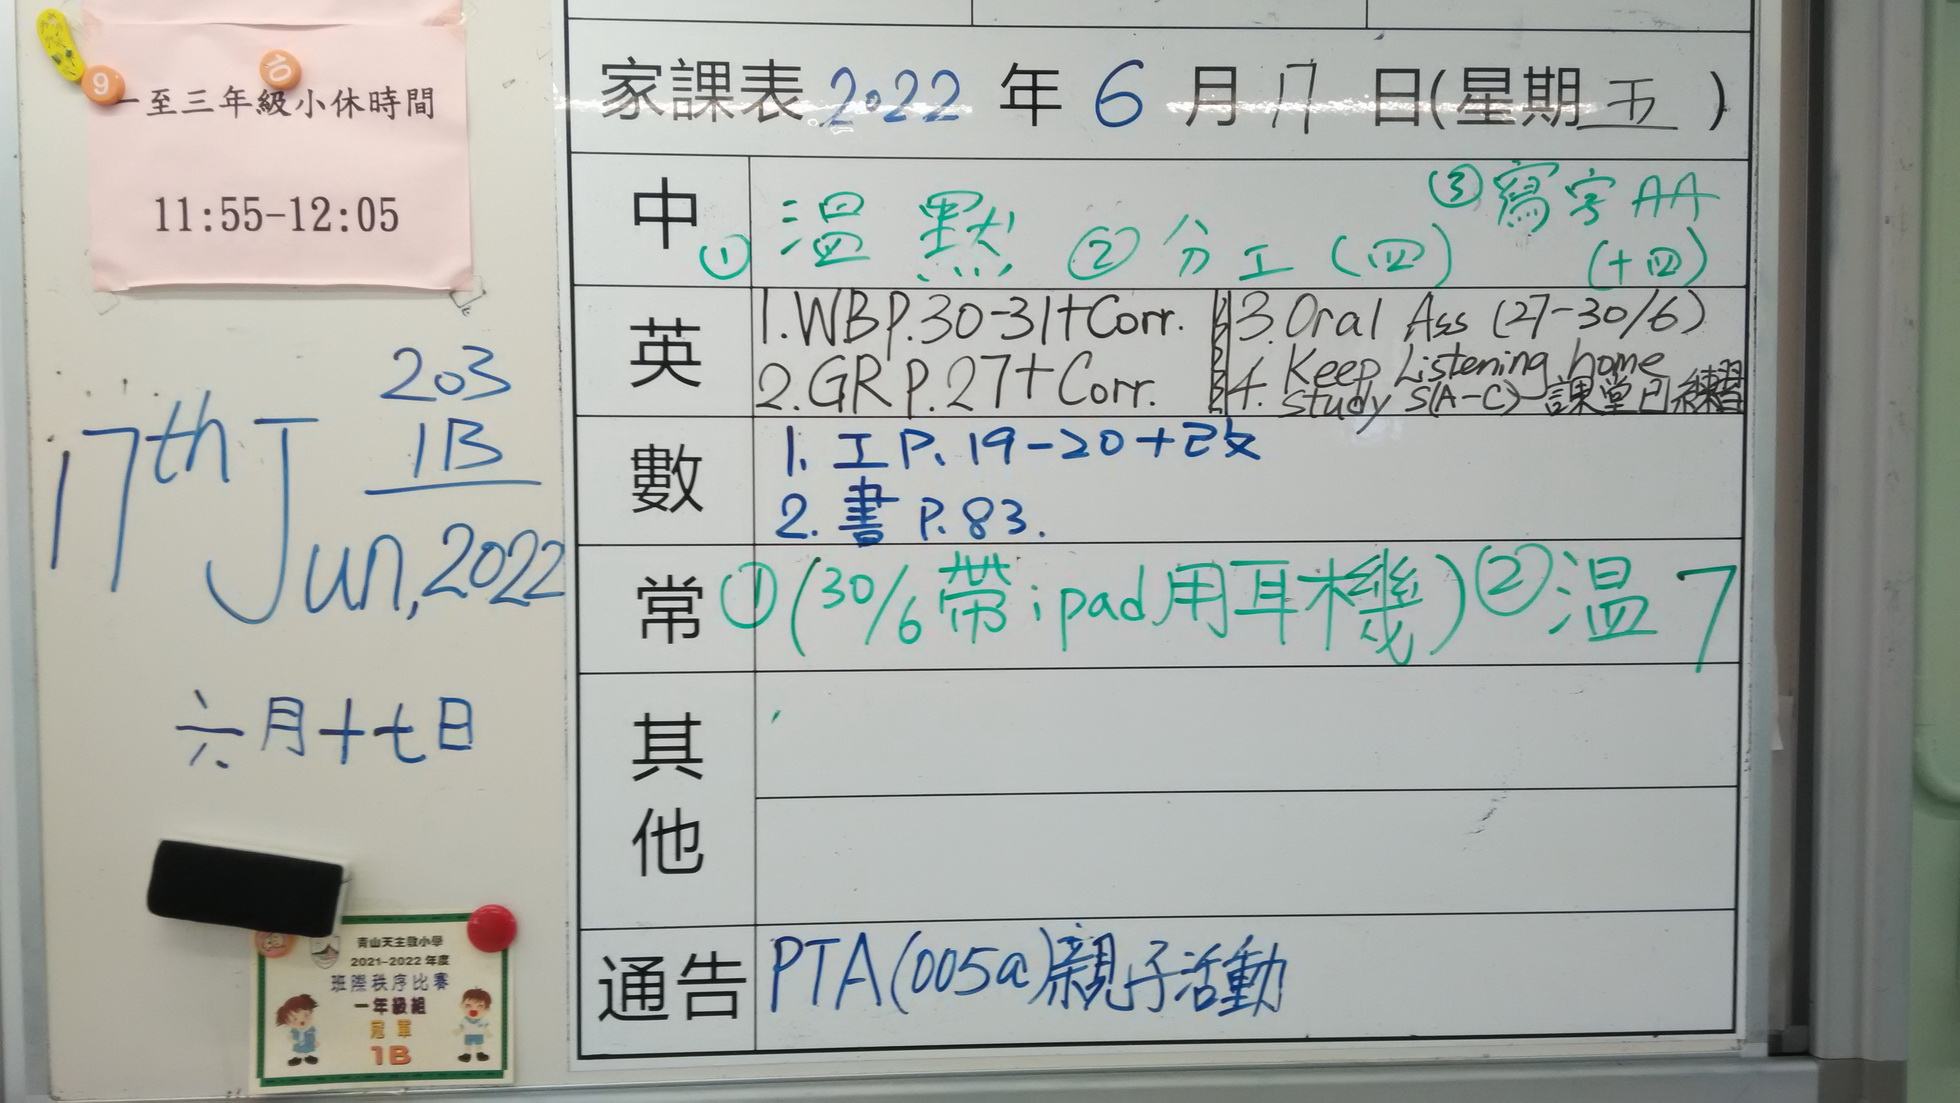 9
10
一至三年級小休時間
11:55-12:05
203
1B
17th Jun, 2022
六月十七日
青山天主教小學
2021-2022 年度
班際秩序比賽
一年級組
冠軍
1B
家課表 2022 年 6 月 17 日(星期五)
中 ① 溫默 ② 分工(四) ③ 寫字AA
(十四)
英 1. WB P.30-31+Corr. 3. Oral Ass (27-30/6)
2. GR P.27+Corr. 4. Keep Listening home
study S(A-C)-課堂已練習
數 1. 工 P. 19-20+改
2. 書 P. 83.
常 ① (30/6 帶 ipad 用耳機) ② 溫 7
其他
通告 PTA(005a)親子活動